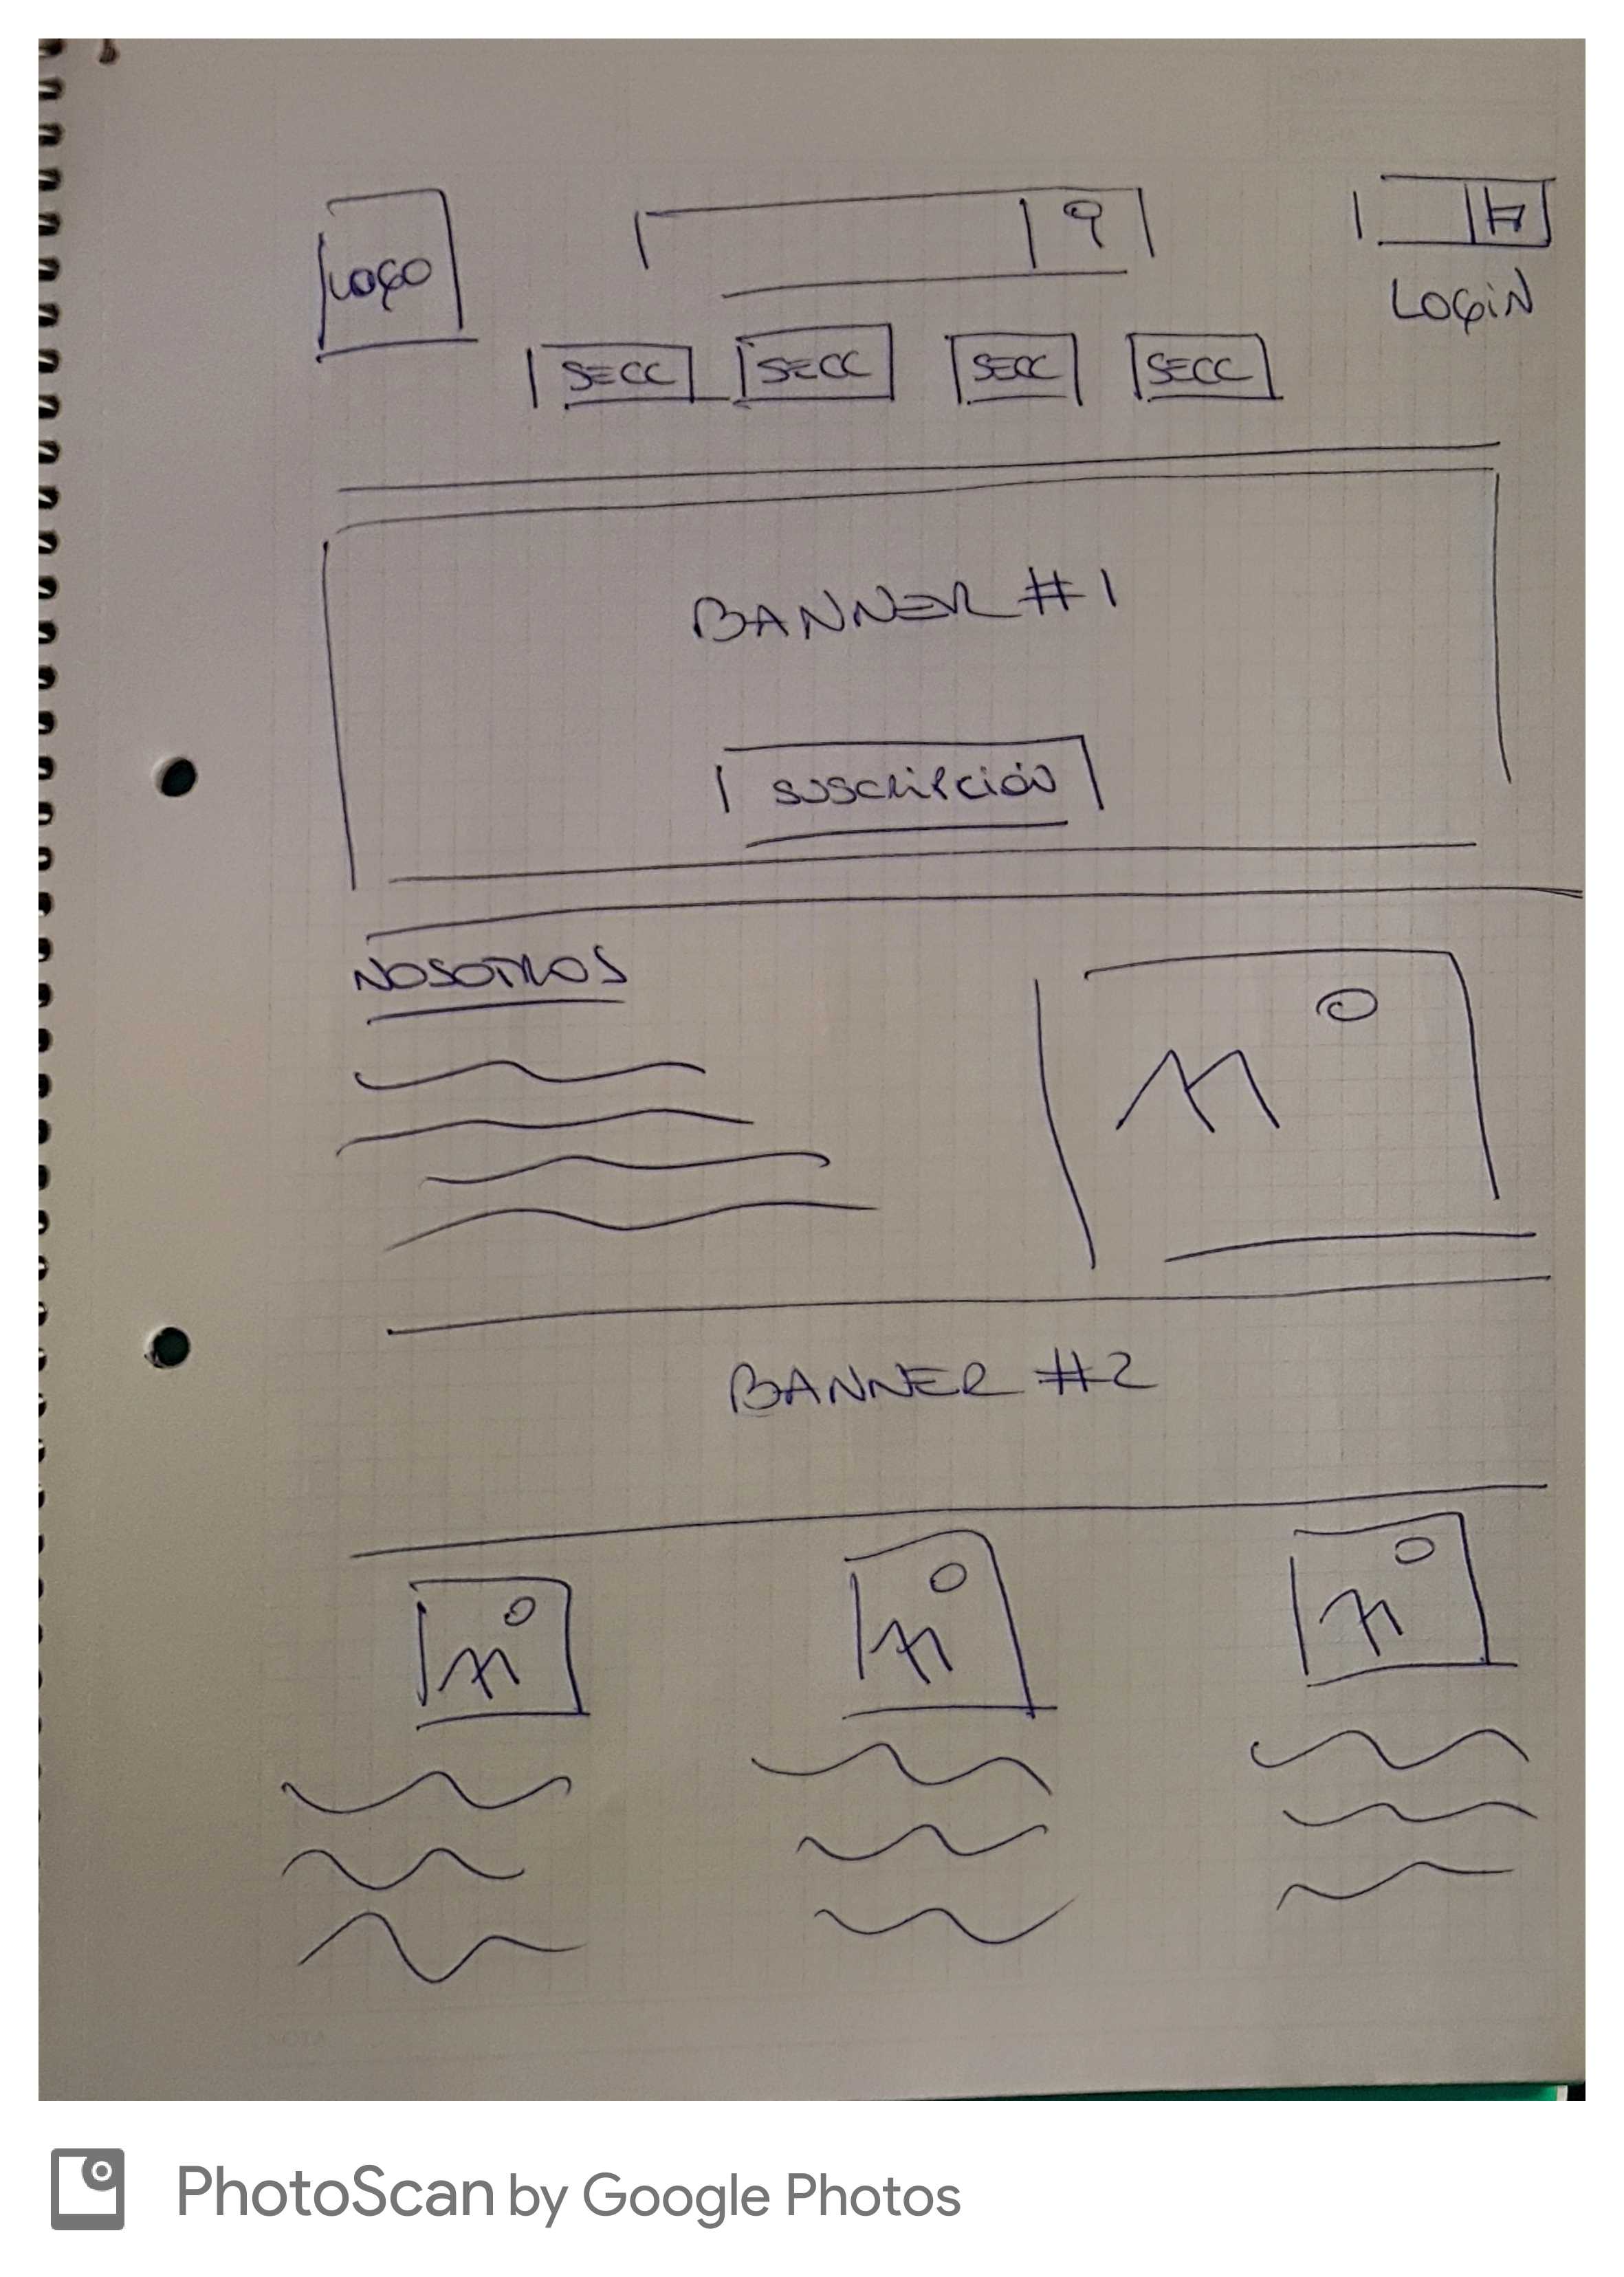 LOGO
LOGIN
SECC SECC SECC SECC
BANNER #1
SUSCRIPCIÓN
NOSOTROS
BANNER #2
PhotoScan by Google Photos